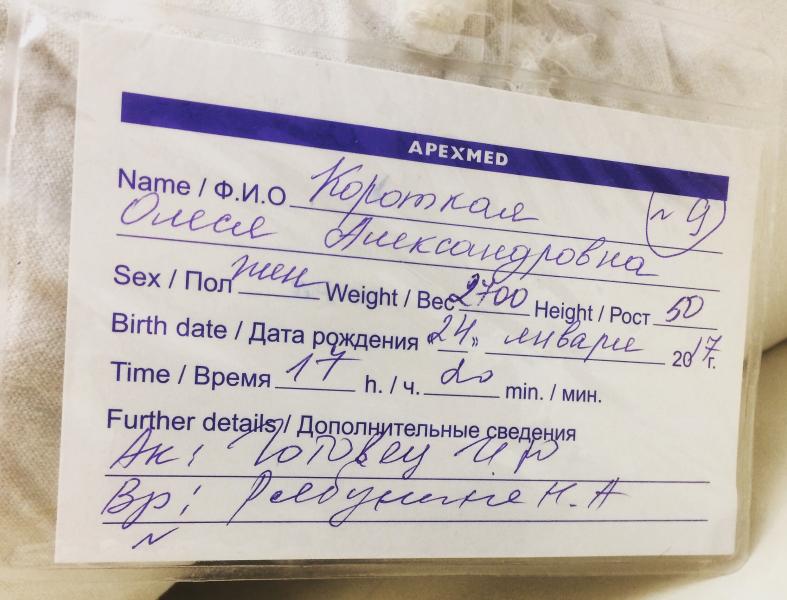 APEXMED
Name / Ф.И.О Короткая ~ 9
Олеся Александровна
Sex / Пол жен Weight / Вес 2700 Height / Рост 50
Birth date / Дата рождения «24» января 2017г.
Time / Время 17 h. / ч. 20 min. / мин.
Further details / Дополнительные сведения
Ак:
Вр: Рябинина Н.А